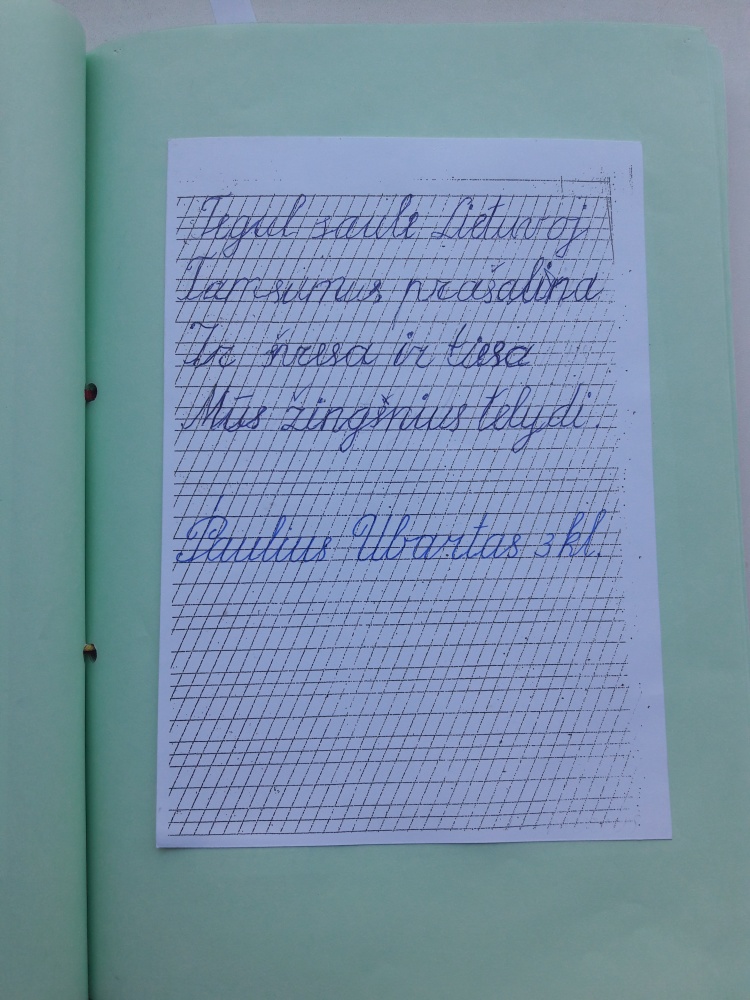 Tegul saulė Lietuvoj
Tamsumus prašalina
Ir šviesa ir tiesa
Mūs žingsnius telydi.
Paulius Ubartas 3 kl.